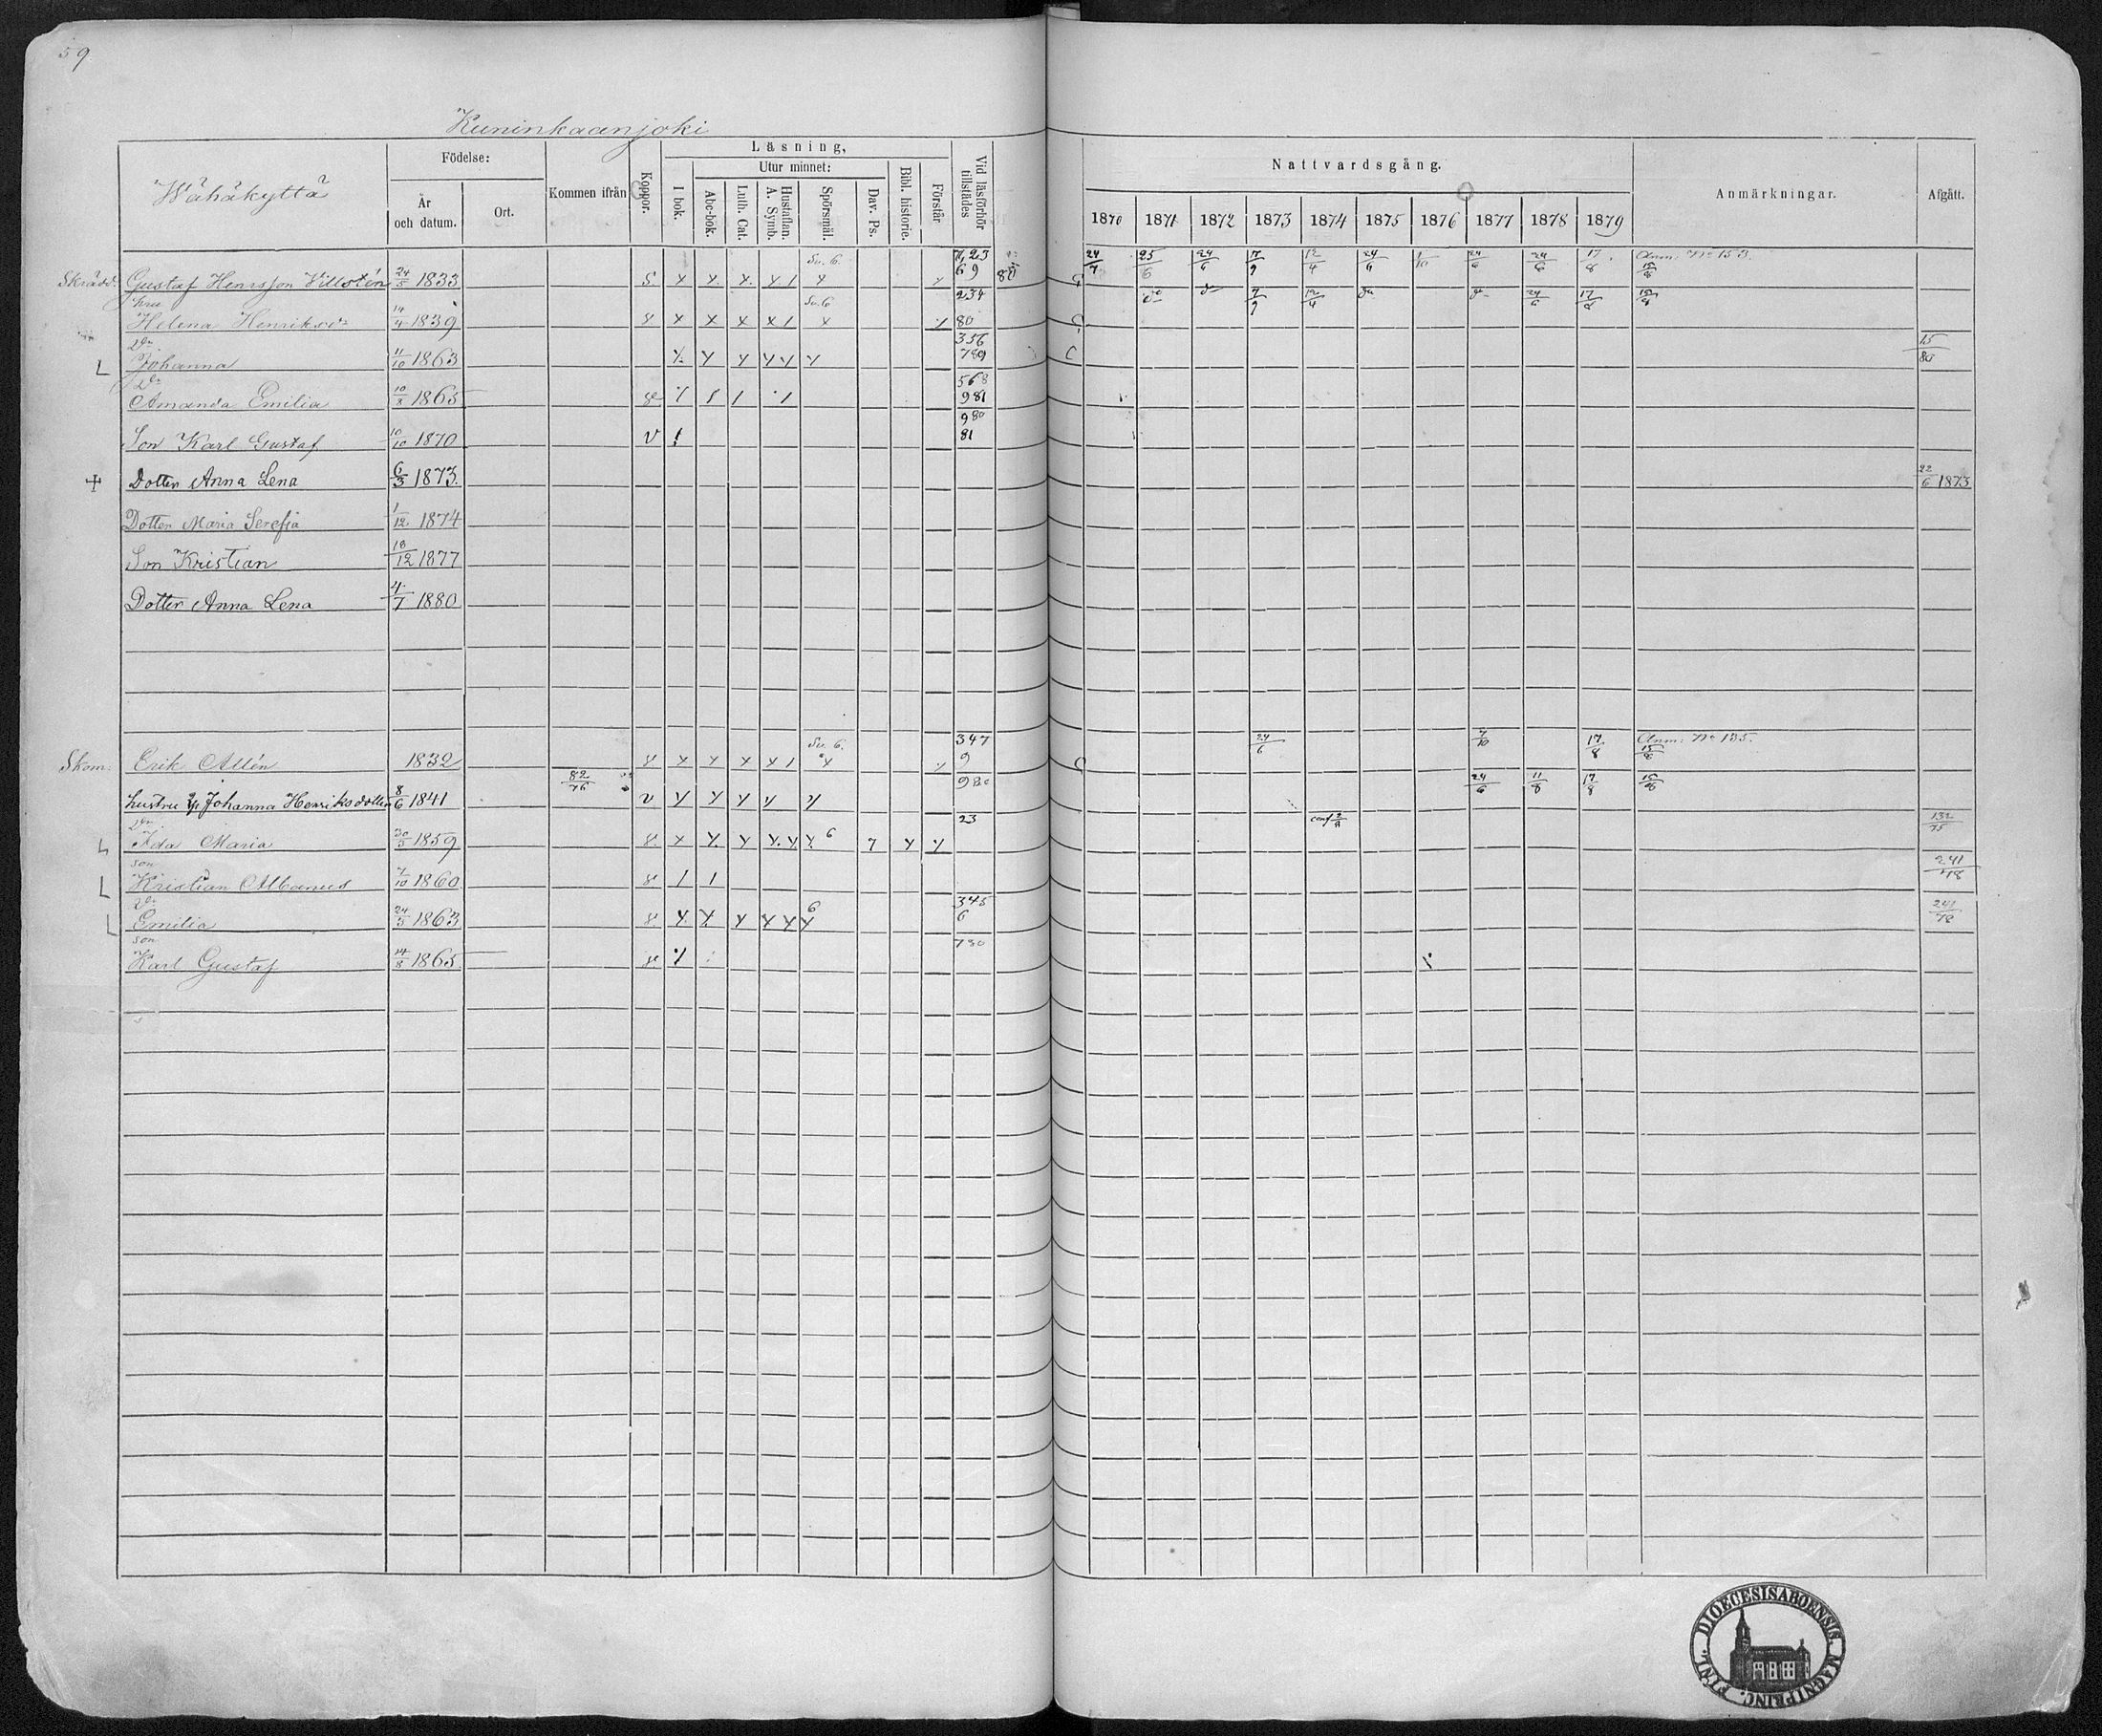 59
Kuninkaanjoki
Wähäkyttä
Födelse:
År och datum.
Ort.
Kommen ifrån
Koppor.
Läsning,
I bok.
Utur minnet:
Abc-bok.
Luth. Cat.
Hustaflan. A. Symb.
Spörsmål.
Dav. Ps.
Bibl. historie.
Förstår
Vid läsförhör tillstädes
Nattvardsgång.
1870 1871 1872 1873 1874 1875 1876 1877 1878 1879
Anmärkningar.
Afgått.
Skrädd. Gustaf Henrsson 24/5 1833 Sv. 6. 69 80 24/7 25/6 24/6 7/9 12/4 24/6 1/10 24/6 24/6 17/8 Anm. No 153. 15/8
hru Helena 14/4 1839 Sv. 6 234 80 do do 7/9 12/4 do do 24/6 17/8 15/8
dr Johanna 11/10 1863 356 789 15/80
dr Amanda Emilia 10/8 1865 568 981
Son Karl Gustaf 10/10 1870 980 81
Dotter Anna Lena 6/3 1873. 22/6 1873
Dotter Maria Serefia 1/12 1874
Son Kristian 18/12 1877
Dotter Anna Lena 4/7 1880
Skom. Erik Allén 1832 Sv. 6. 347 9 24/6 7/10 17/8 Anm. No 135. 15/8
hustru Johanna Henriksdotter 8/6 1841 82/76 980 24/6 11/8 17/8 15/8
dr Ida Maria 30/5 1859 6 23 conf 132/75
son Kristian Albanus 7/10 1860 241/78
dr Emilia 24/5 1863 6 345 6 241/78
son Karl Gustaf 14/8 1865 780
DIOECESIS ABOENSIS. MAGNI PRINC. FINL.